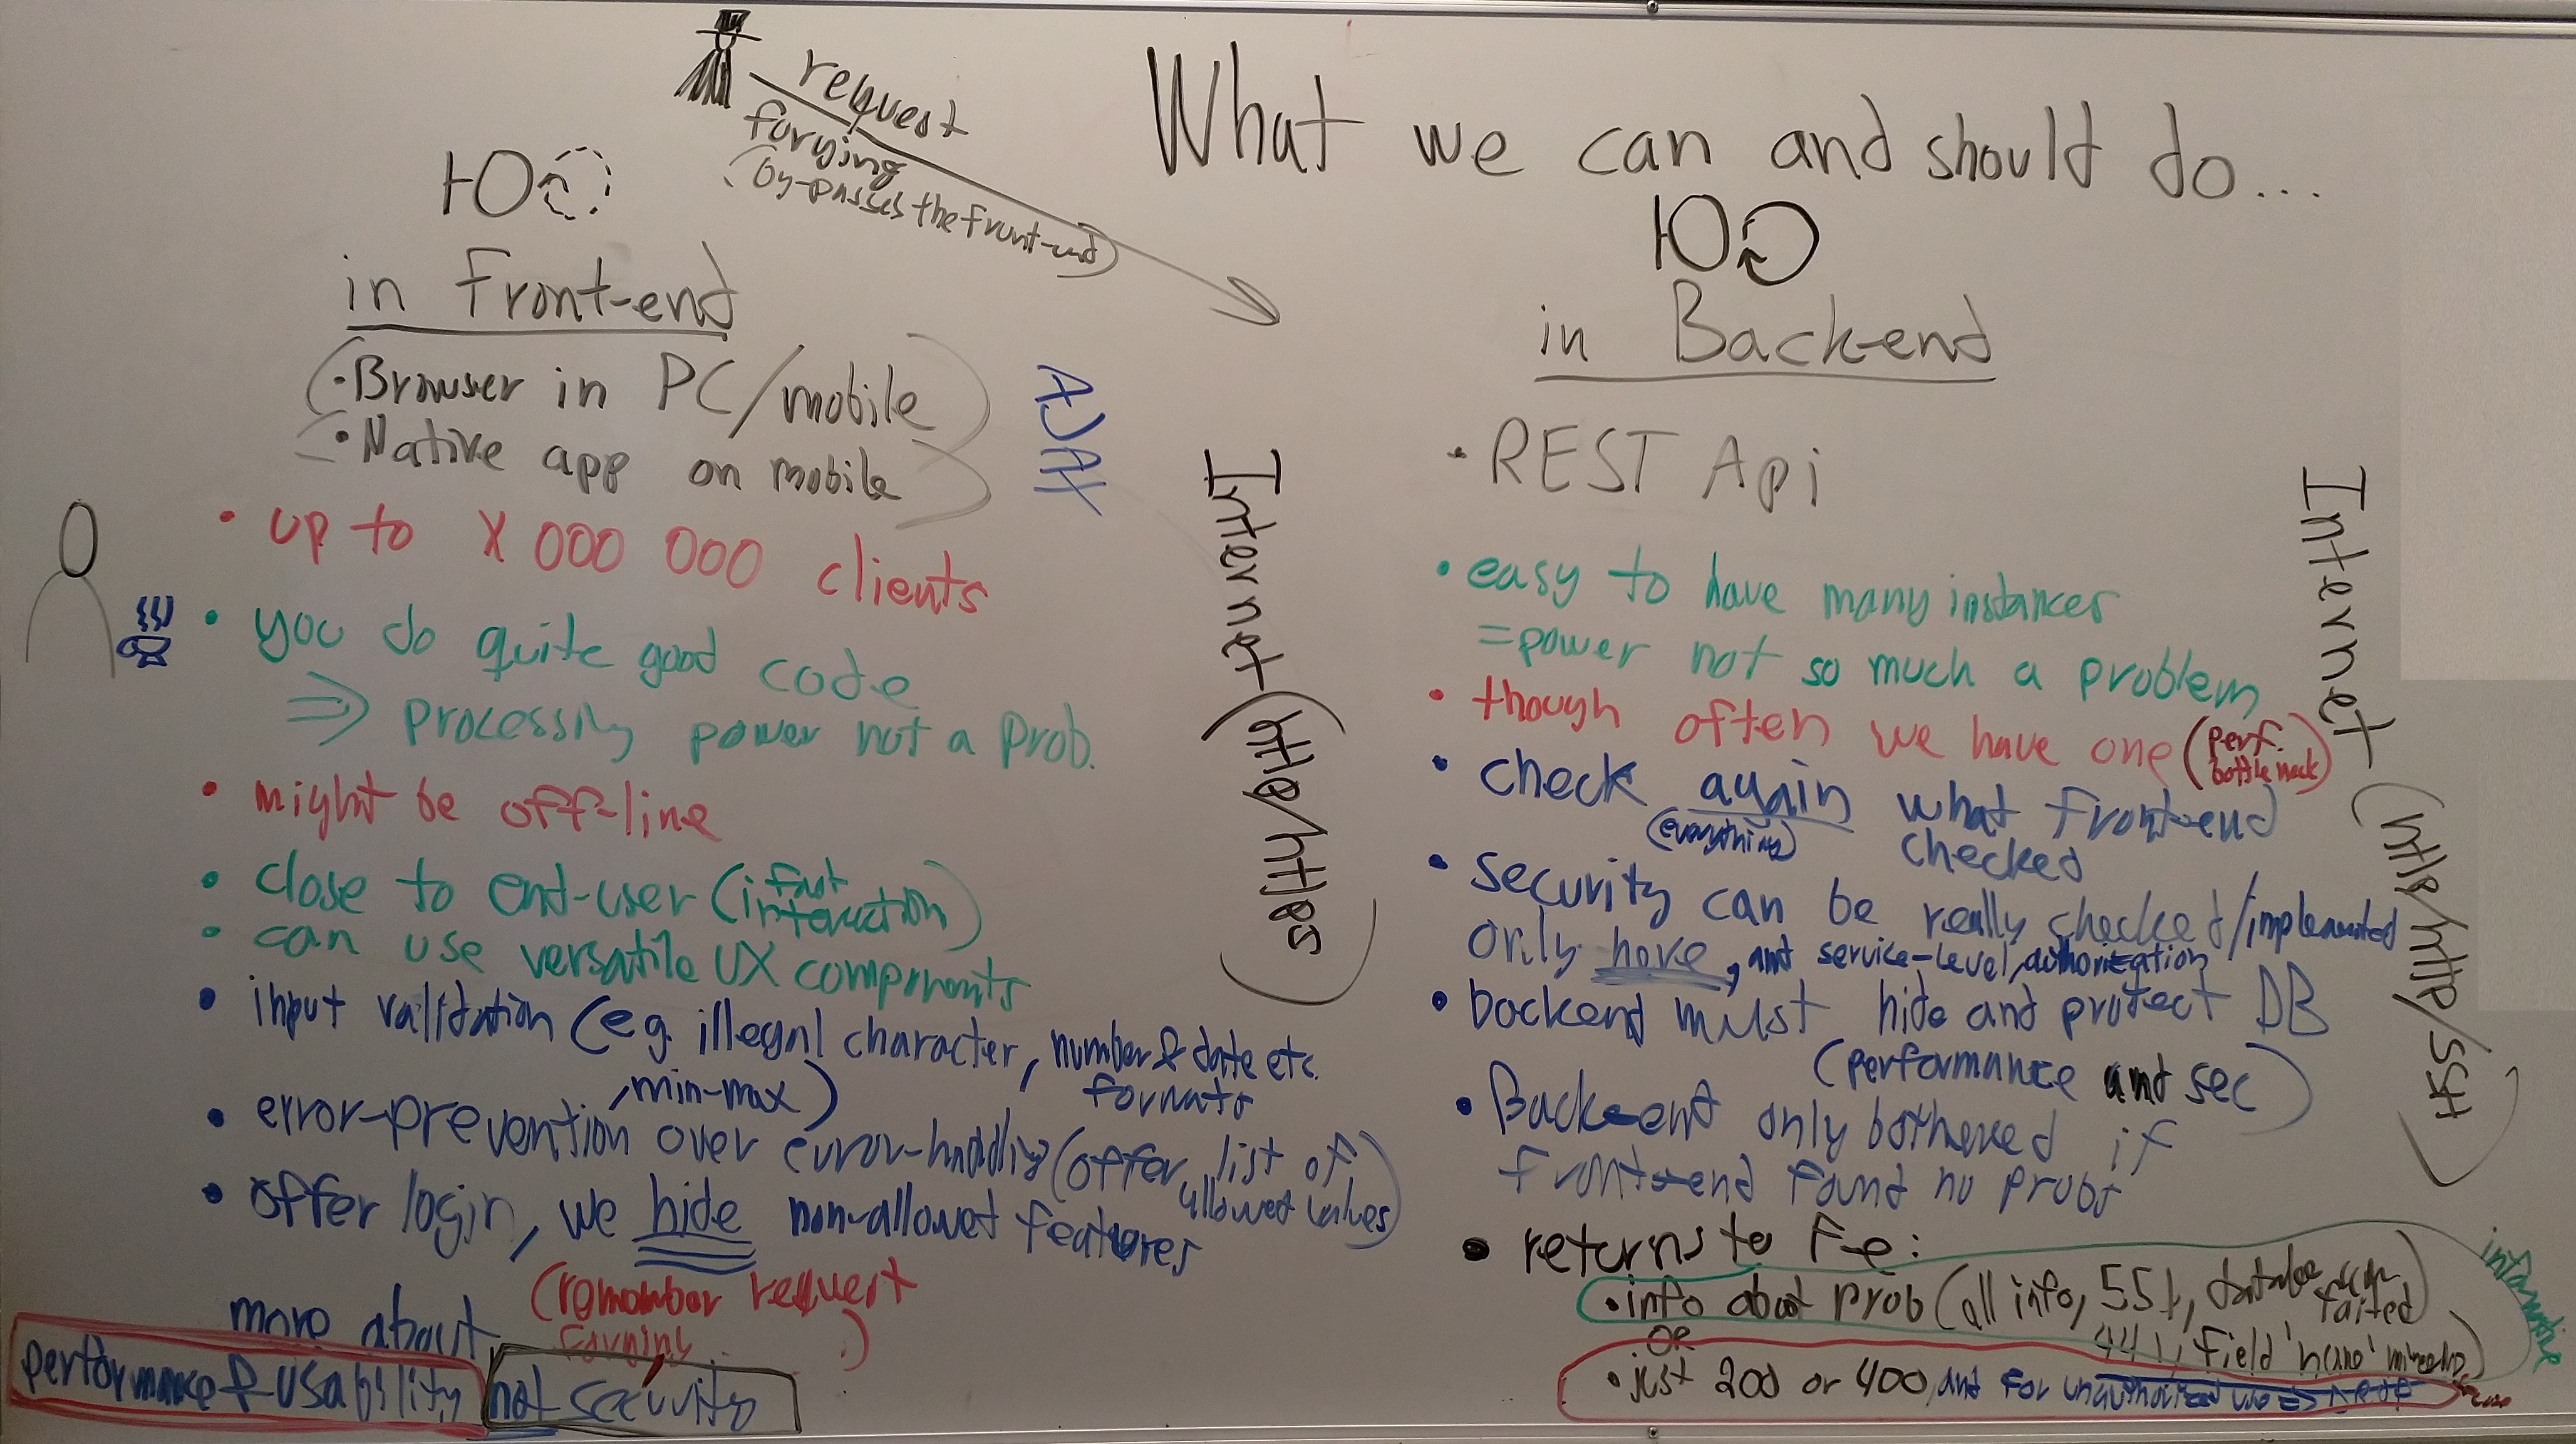 What we can and should do...
request
forging
(by-passes the front-end)
in Front-end
(• Browser in PC/mobile)
(• Native app on mobile)
• up to X 000 000 clients
• you do quite good code
⇒ processing power not a prob.
• might be off-line
• close to end-user (fast interaction)
• can use versatile UX components
• input validation (e.g. illegal character, number & date etc. formats
, min-max)
• error-prevention over error-handling (offer list of allowed values)
• offer login, we hide non-allowed features
(remember request forging)
more about
performance & usability
not security
AJAX
Internet (http/https)
in Back-end
• REST Api
• easy to have many instances
=power not so much a problem
• though often we have one (perf. bottleneck)
• check again what front-end
(everything) checked
• security can be really checked/implemented
only here, and service-level, authorization
• backend must hide and protect DB
(performance and sec)
• Back-end only bothered if
front-end found no probs
• returns to F-e:
• info about prob (all info, 551, database failed
OR
441, Field 'name'
• just 200 or 400, and for unauthorized
Internet (http/http/SSH)